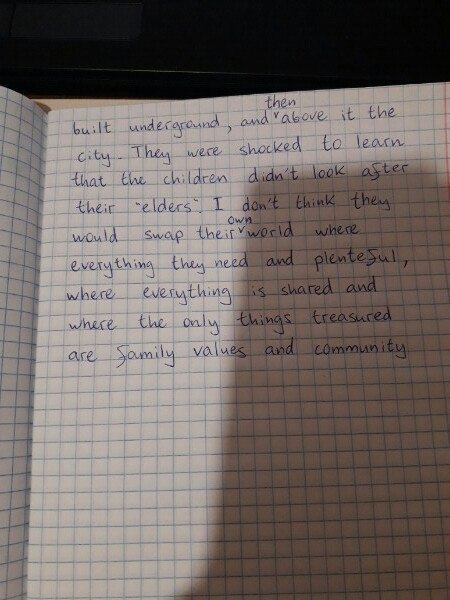 built underground, and then above it the
city. They were shocked to learn
that the children didn't look after
their "elders". I don't think they
would swap their own world where
everything they need and plenteful,
where everything is shared and
where the only things treasured
are family values and community